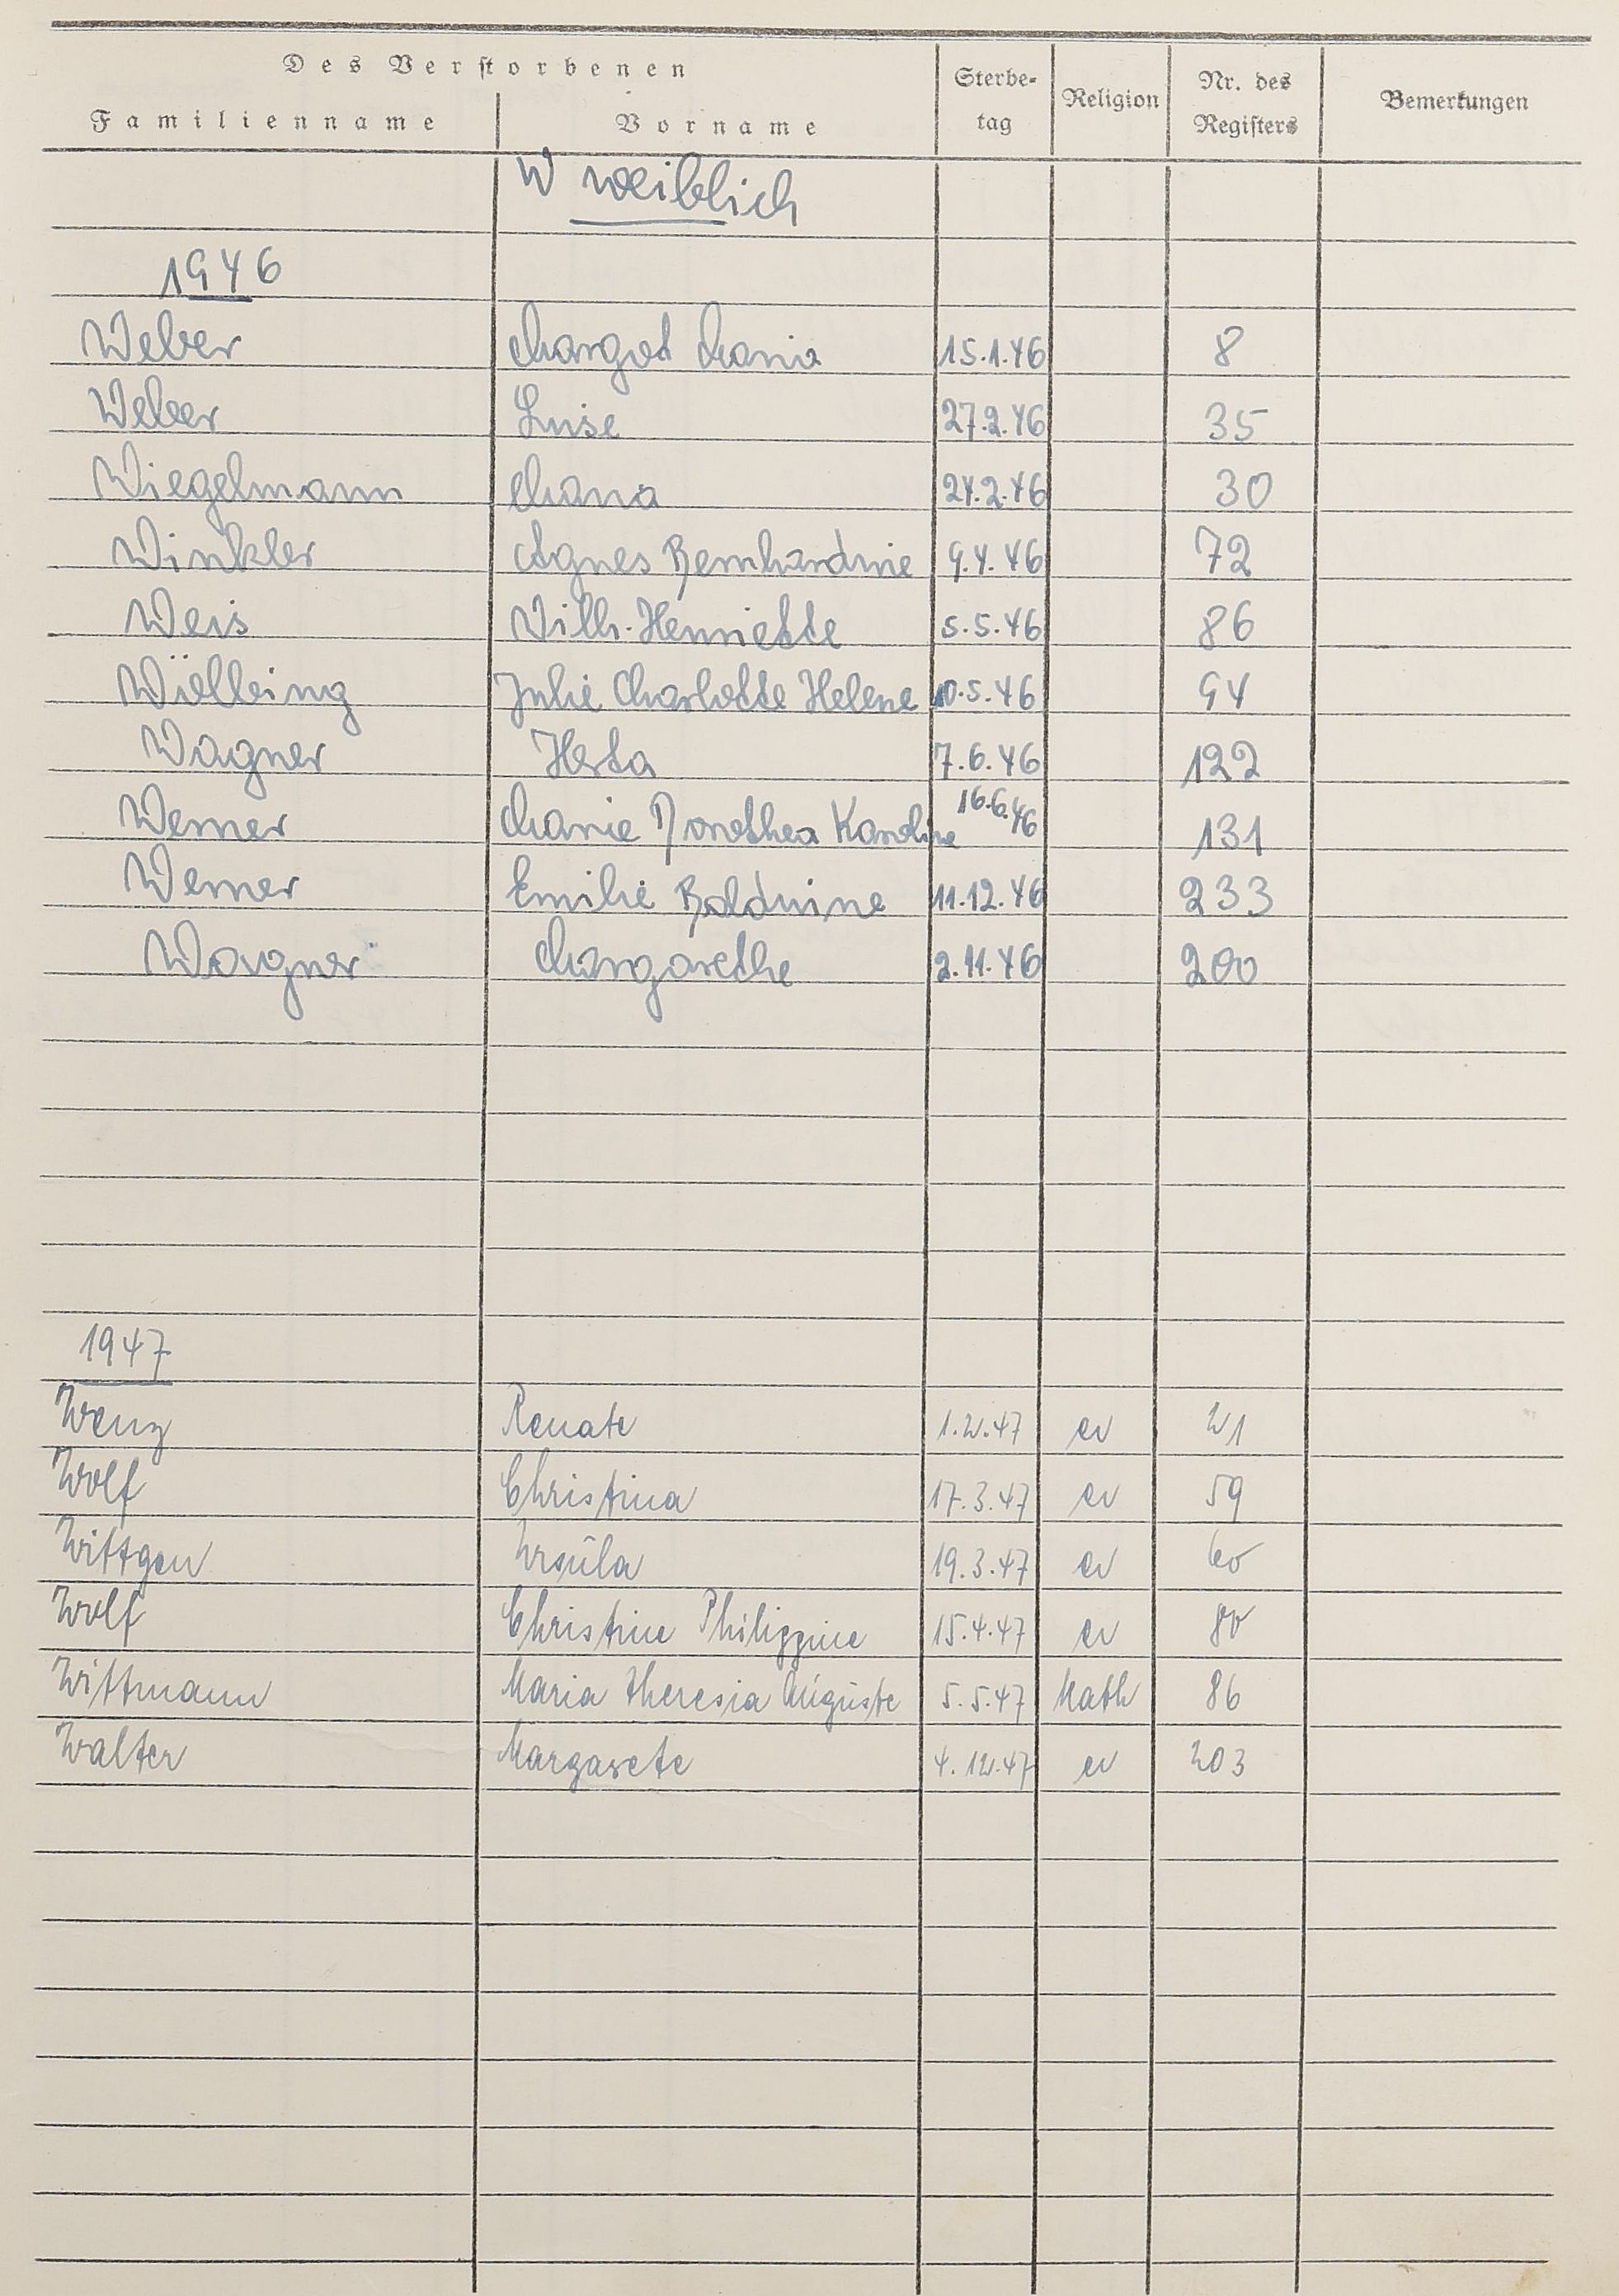 Des Verstorbenen
Familienname Vorname Sterbe-tag Religion Nr. des Registers Bemerkungen
W weiblich
1946
Weber Margot Maria 15.1.46 8
Weber Luise 27.2.46 35
Wiegelmann Maria 24.2.46 30
Winkler Agnes Bernhardine 9.4.46 72
Weis Wilh. Henriette 5.5.46 86
Julie Charlotte Helene 10.5.46 94
Wagner Herta 7.6.46 122
Werner Marie Dorothea Karoline 16.6.46 131
Werner Emilie Balduine 11.12.46 233
Wagner Margarethe 2.11.46 200
1947
Wenz Renate 1.2.47 ev 21
Wolf Christina 17.3.47 ev 59
Wittgen Ursula 19.3.47 ev 60
Wolf Christine Philippine 15.4.47 ev 80
Wittmann Maria Theresia Auguste 5.5.47 kath 86
Walter Margarete 4.12.47 ev 203